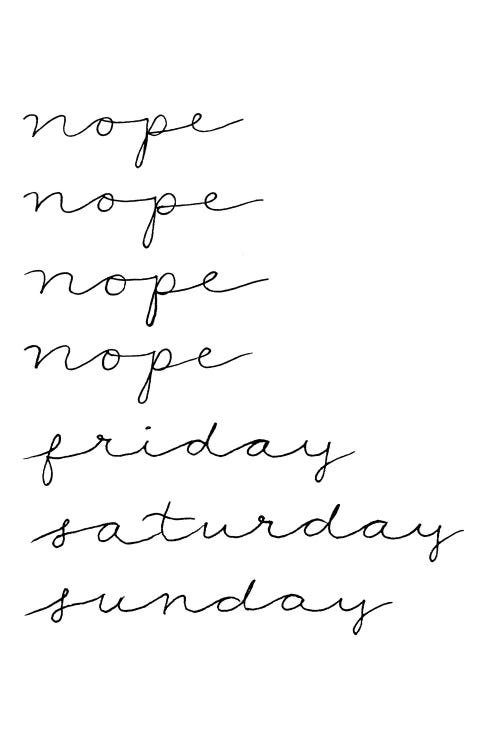 nope
nope
nope
nope
friday
saturday
sunday